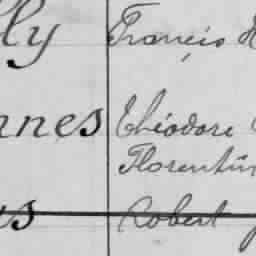 lly Francis H
nnes Théodore
Florentin
us Robert